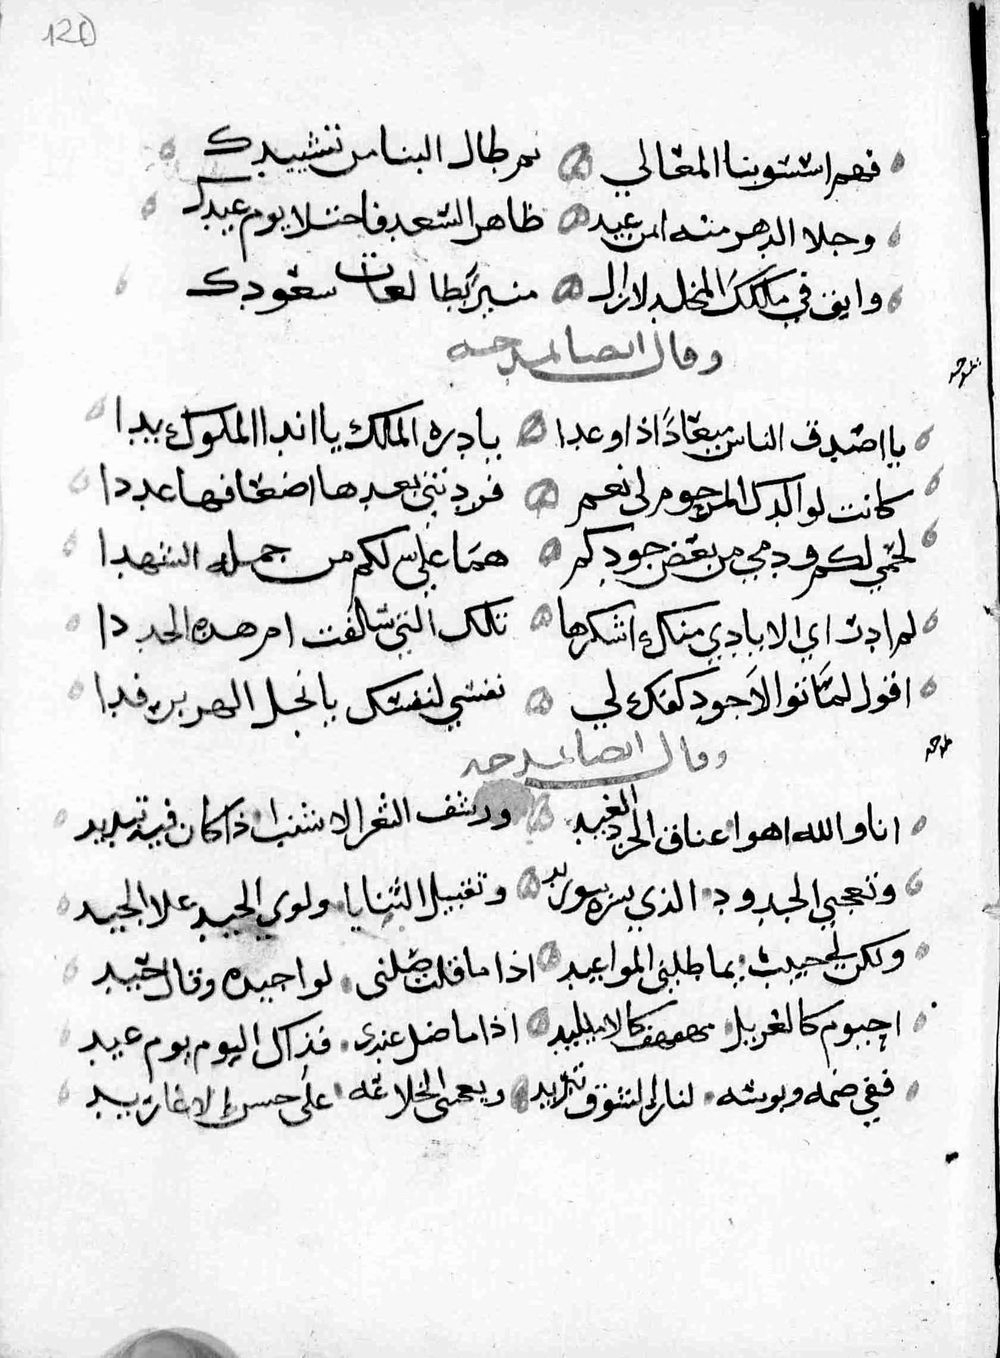 120
فهم استسو بنا المعالي نمر طال البنا من تشييدك
وجلا الدهر منه امن عبيد ظاهر السعد فاحتلا يوم عيدك
وابق في ملكك المخلد لازال منيرا بطالعات سعودك
وقال ايضا لمدحه
يا اصدق الناس ميعادا اذا وعدا يا دره الملك يا اندا الملوك يدا
كانت لوالدك المرحوم لي نعم فزدتني بعدها اضعافها عددا
لحمي لكم ودمي من بعض جودكم هما علي لكم من جمله الشهدا
لم ادر اي الايادي منك اشكرها تلك التي سالفت ام هده الجددا
اقول لما نوا لا جود كفك لي نفسي لنفسك يا نجل الهربر فدا
وقال ايضا لمدحه
انا والله اهوا عناق الخرد الغيد ورشف الثغر الاشنب اذا كان فيه تبديد
وتعجبي الخدود الذي بيزه سوريد وتقبيل الثنايا ولوي الجيد علا الجيد
ولكن لي حبيب يماطلني المواعيد اذا ما قلت صلني لوا جيده وقال حيد
احبو كالغر يل مهفهف كالاميليد اذا ما ضل عندي فذاك اليوم يوم عيد
ففي ضمه وبوسه لنار الشوق تبريد ويعجبني الخلاعه على حسن الاغاريد